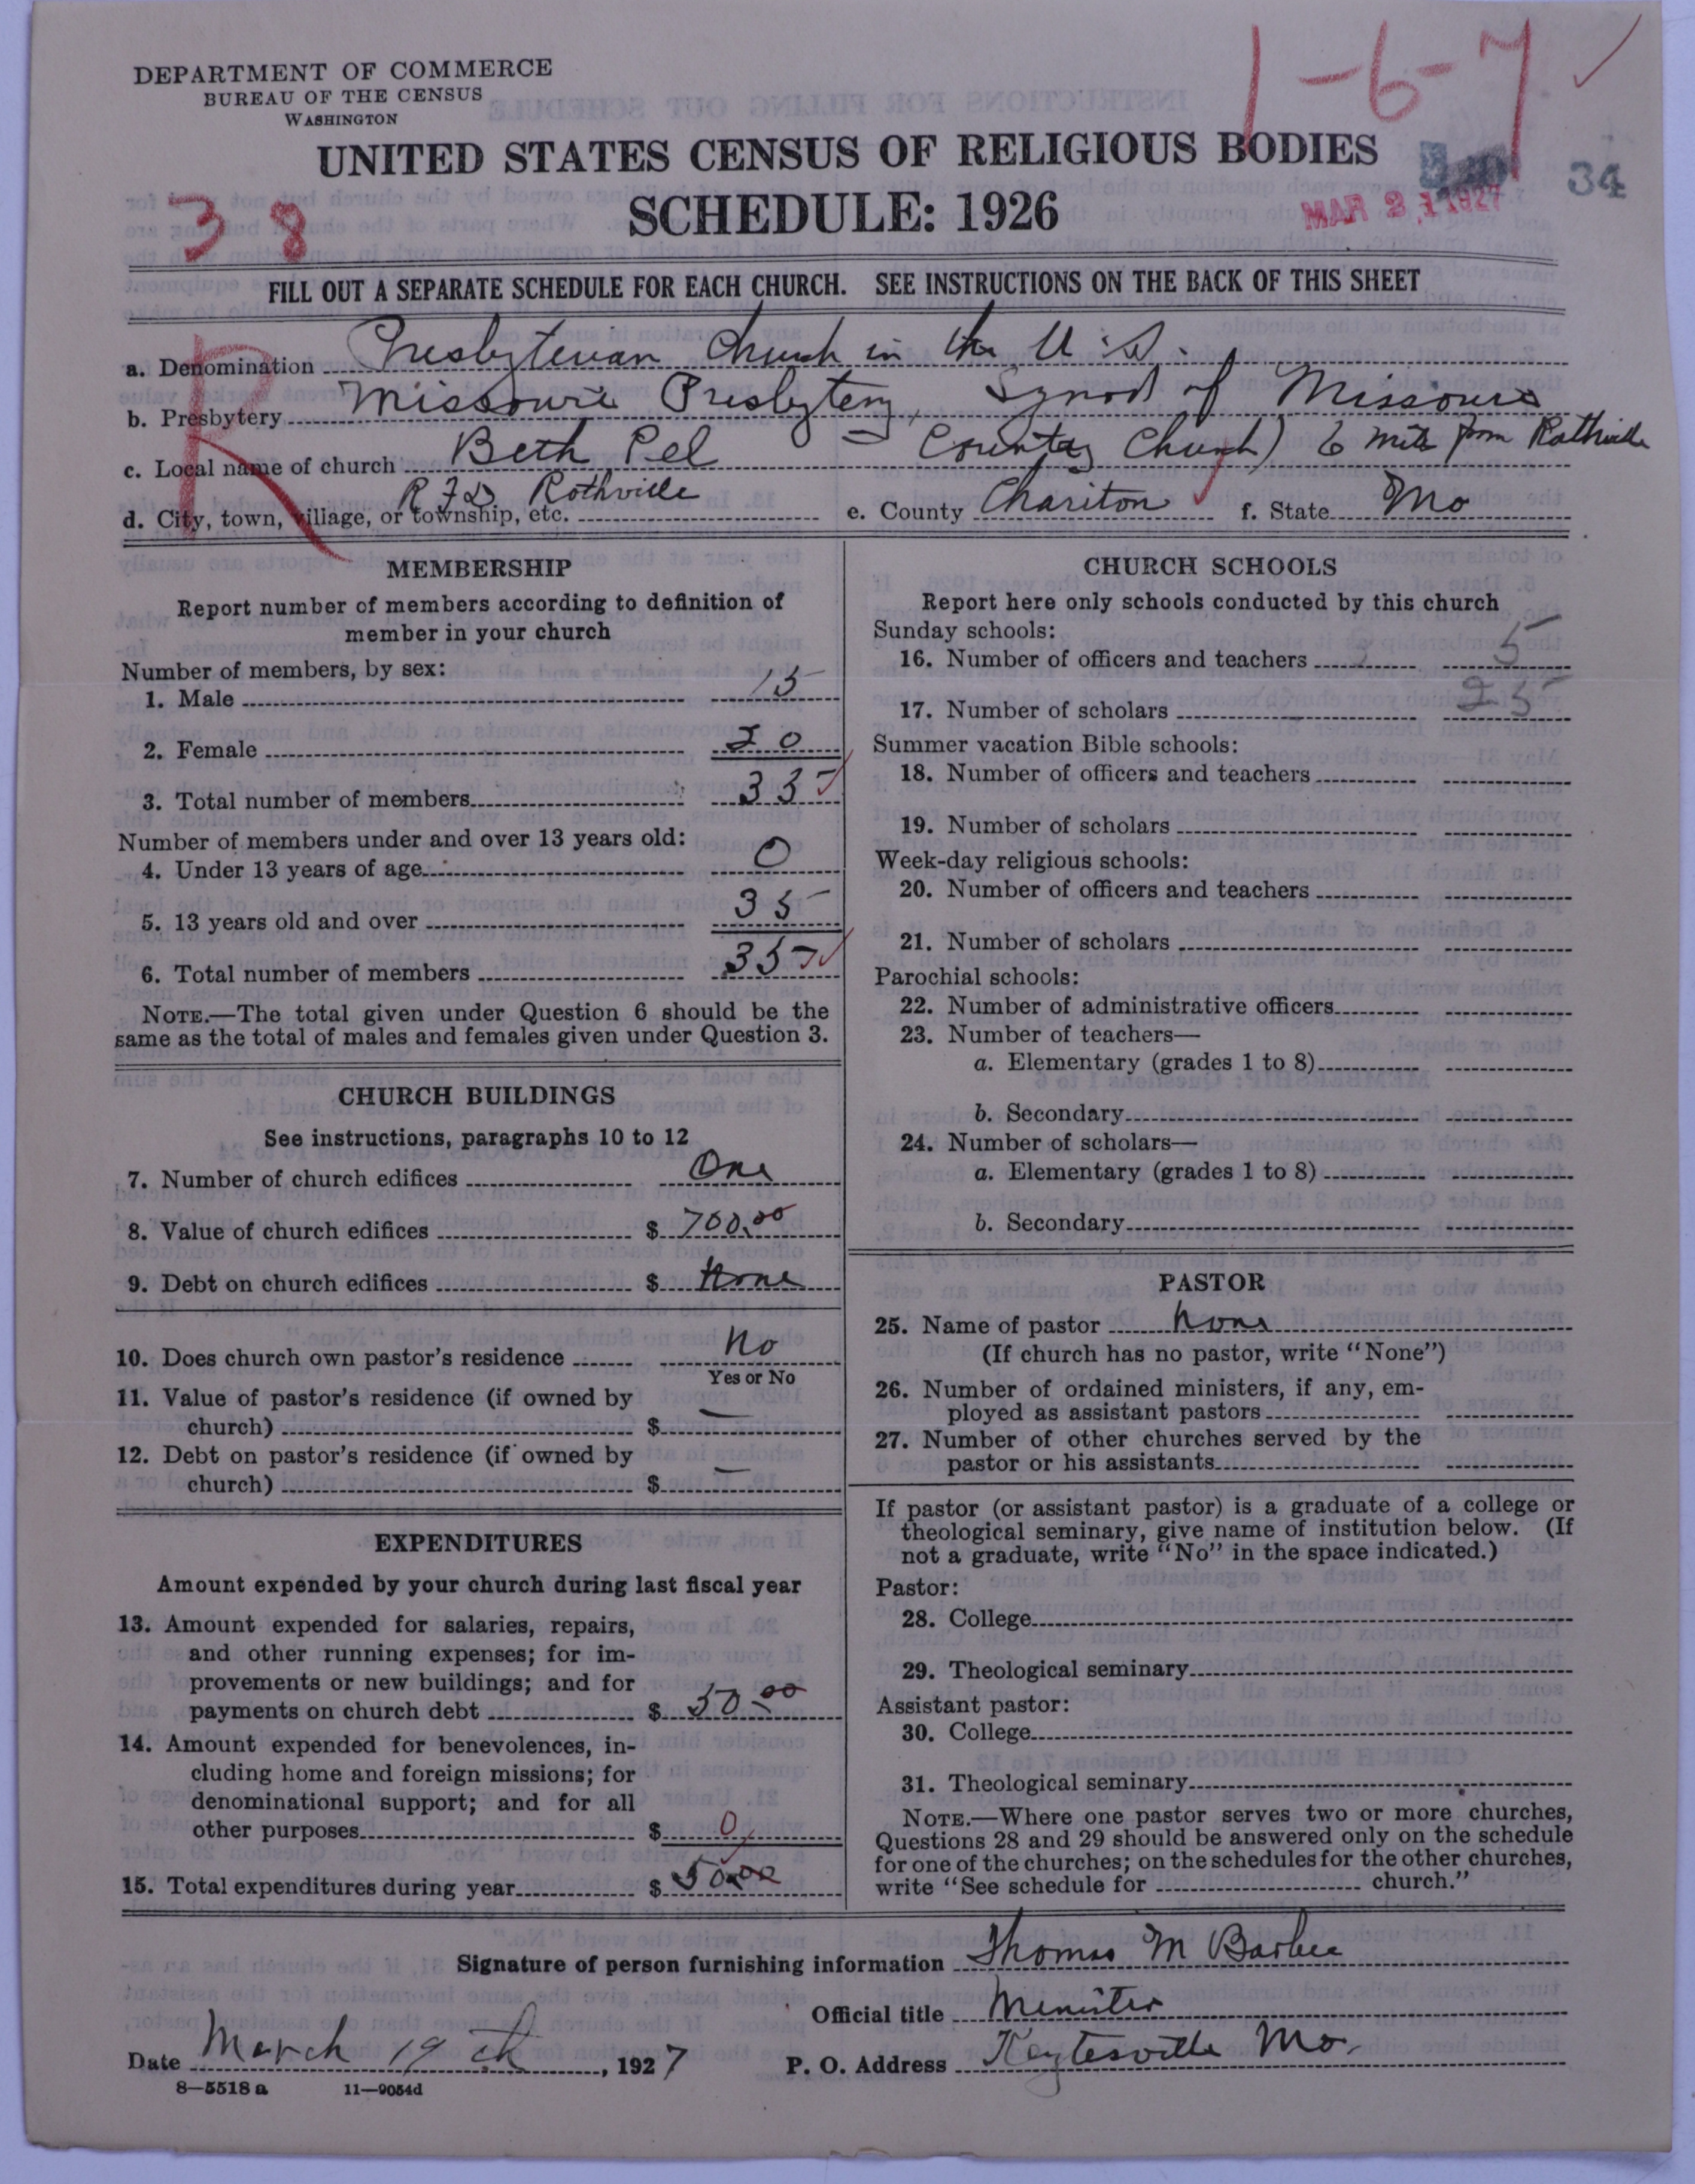 DEPARTMENT OF COMMERCE
BUREAU OF THE CENSUS
WASHINGTON
1-6-7
UNITED STATES CENSUS OF RELIGIOUS BODIES
SCHEDULE: 1926
34
MAR 21 1927
38
FILL OUT A SEPARATE SCHEDULE FOR EACH CHURCH. SEE INSTRUCTIONS ON THE BACK OF THIS SHEET
R
a. Denomination Presbyterian Church in the U.S.
b. Presbytery Missouri Presbytery, Synod of Missouri
c. Local name of church Beth Pel Country Church) 6 mile from Rothville
d. City, town, village, or township, etc. RFD Rothville e. County Chariton f. State Mo
MEMBERSHIP
Report number of members according to definition of
member in your church
Number of members, by sex:
1. Male 15
2. Female 20
3. Total number of members 35
Number of members under and over 13 years old:
4. Under 13 years of age 0
5. 13 years old and over 35
6. Total number of members 35
NOTE.—The total given under Question 6 should be the
same as the total of males and females given under Question 3.
CHURCH BUILDINGS
See instructions, paragraphs 10 to 12
7. Number of church edifices One
8. Value of church edifices $ 700.00
9. Debt on church edifices $ None
10. Does church own pastor's residence No
Yes or No
11. Value of pastor's residence (if owned by
church) $ —
12. Debt on pastor's residence (if owned by
church) $ —
EXPENDITURES
Amount expended by your church during last fiscal year
13. Amount expended for salaries, repairs,
and other running expenses; for im-
provements or new buildings; and for
payments on church debt $ 50.00
14. Amount expended for benevolences, in-
cluding home and foreign missions; for
denominational support; and for all
other purposes $ 0
15. Total expenditures during year $ 50.00
CHURCH SCHOOLS
Report here only schools conducted by this church
Sunday schools:
16. Number of officers and teachers 5
17. Number of scholars 25
Summer vacation Bible schools:
18. Number of officers and teachers
19. Number of scholars
Week-day religious schools:
20. Number of officers and teachers
21. Number of scholars
Parochial schools:
22. Number of administrative officers
23. Number of teachers—
a. Elementary (grades 1 to 8)
b. Secondary
24. Number of scholars—
a. Elementary (grades 1 to 8)
b. Secondary
PASTOR
25. Name of pastor None
(If church has no pastor, write "None")
26. Number of ordained ministers, if any, em-
ployed as assistant pastors
27. Number of other churches served by the
pastor or his assistants
If pastor (or assistant pastor) is a graduate of a college or
theological seminary, give name of institution below. (If
not a graduate, write "No" in the space indicated.)
Pastor:
28. College
29. Theological seminary
Assistant pastor:
30. College
31. Theological seminary
NOTE.—Where one pastor serves two or more churches,
Questions 28 and 29 should be answered only on the schedule
for one of the churches; on the schedules for the other churches,
write "See schedule for church."
Signature of person furnishing information Thomas M Barbee
Official title Minister
Date March 19th, 1927 P. O. Address Keytesville Mo.
8—5518 a 11—9054d